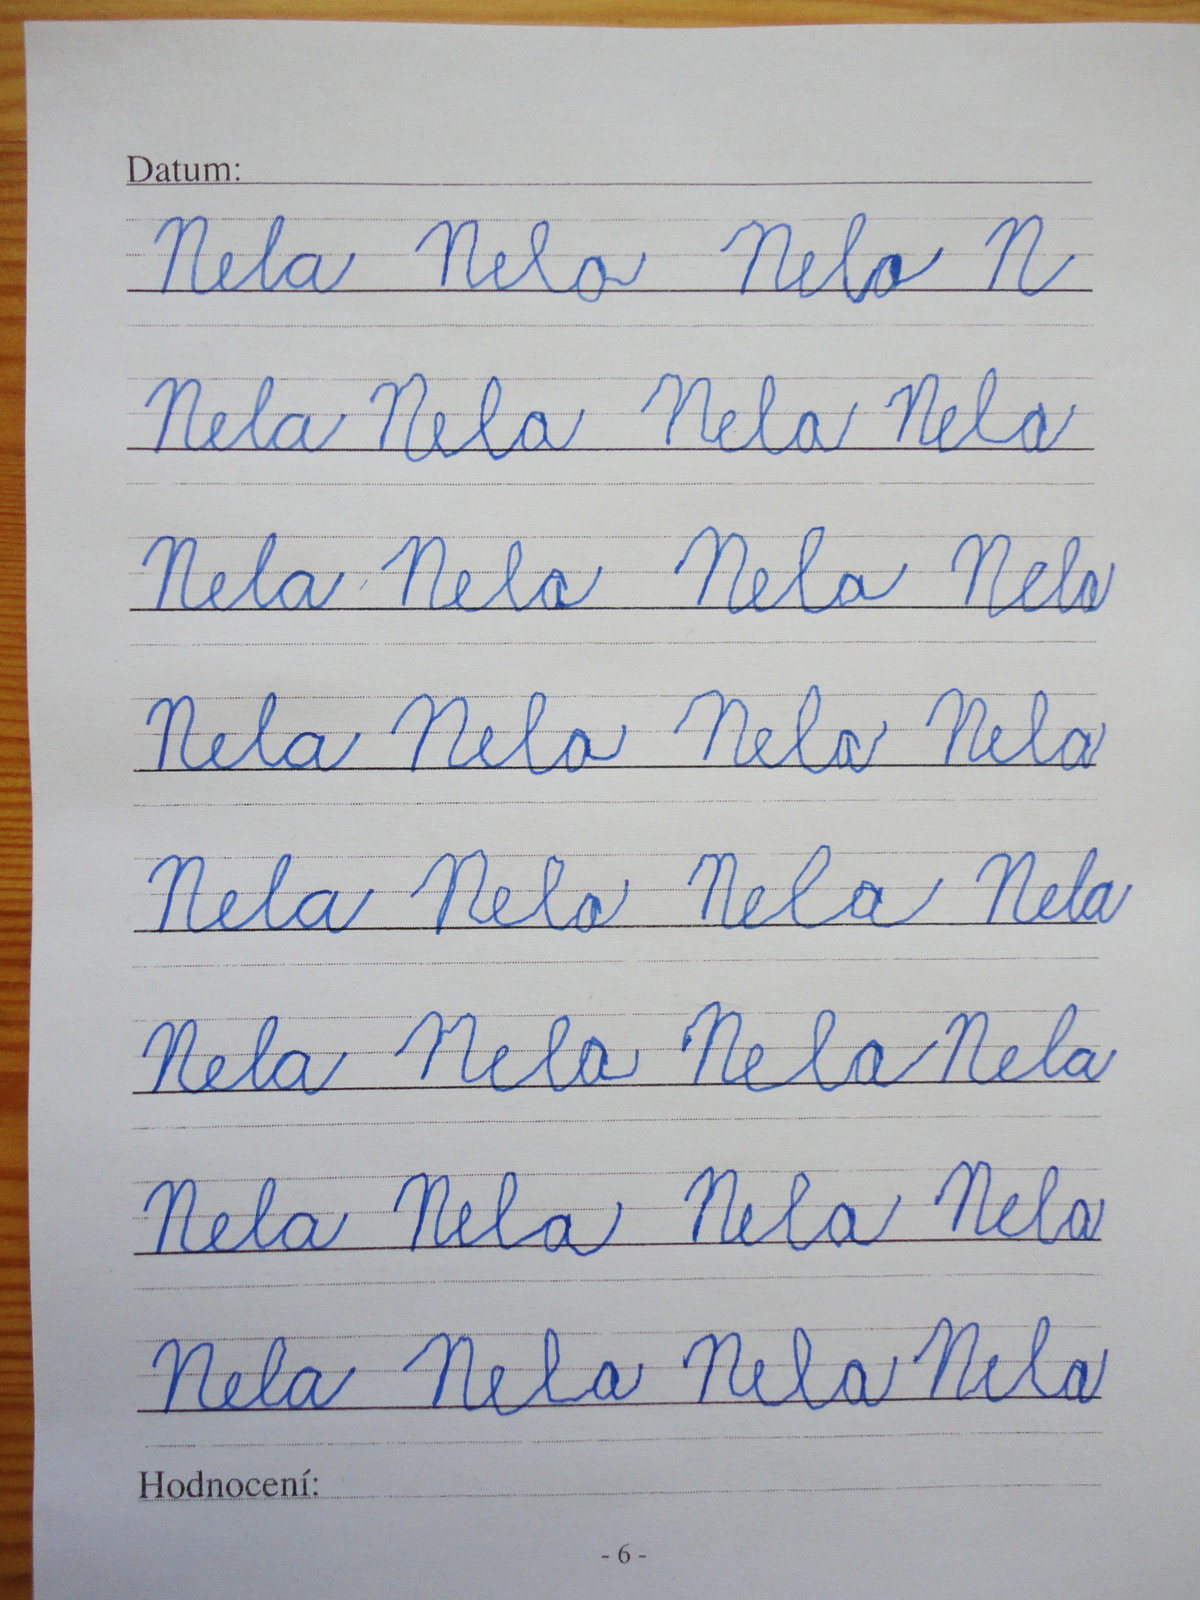 Datum:
Nela Nela Nela N
Nela Nela Nela Nela
Nela Nela Nela Nela
Nela Nela Nela Nela
Nela Nela Nela Nela
Nela Nela Nela Nela
Nela Nela Nela Nela
Nela Nela Nela Nela
Hodnocení:
- 6 -